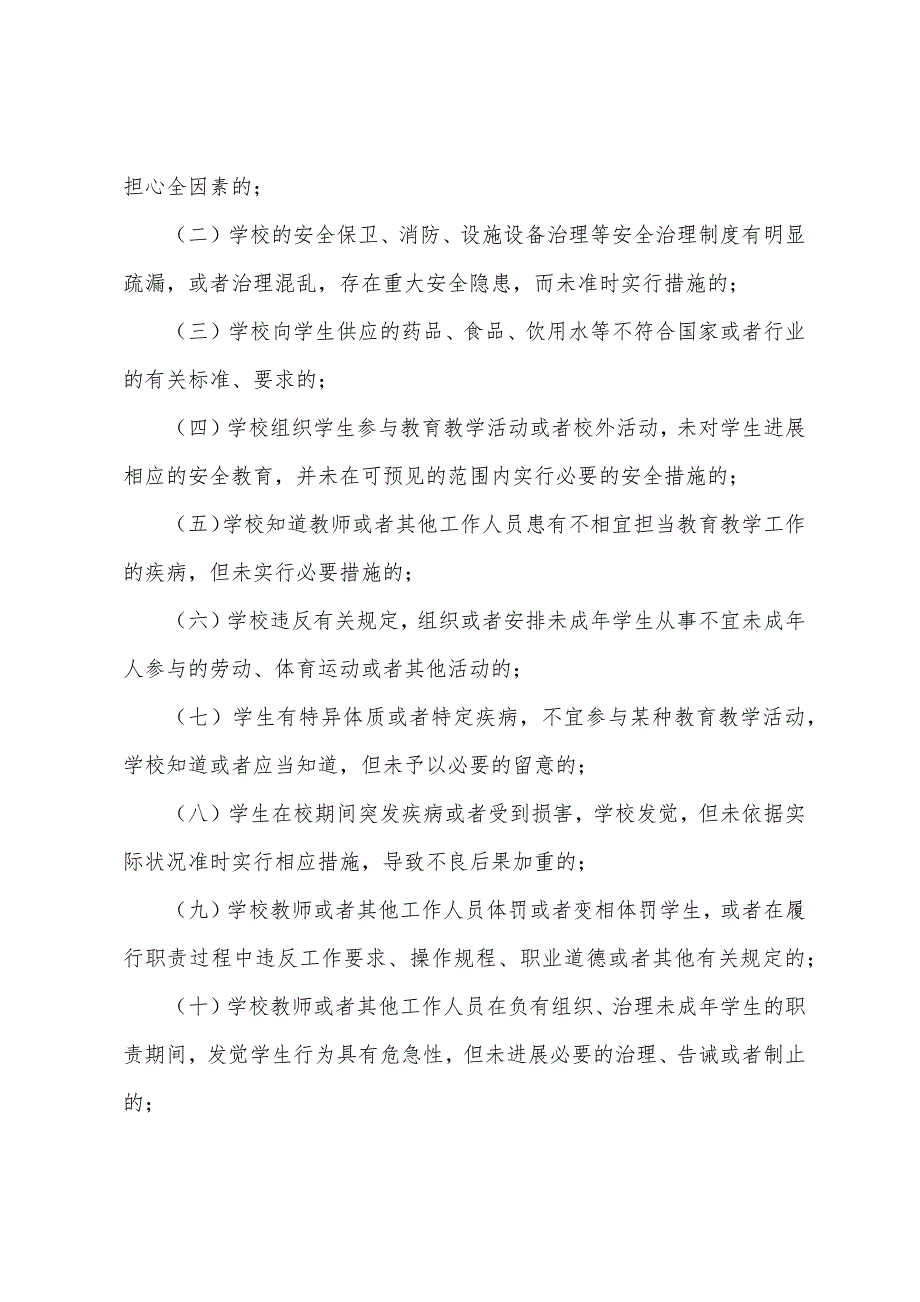 担心全因素的；
（二）学校的安全保卫、消防、设施设备治理等安全治理制度有明显
疏漏，或者治理混乱，存在重大安全隐患，而未准时实行措施的；
（三）学校向学生供应的药品、食品、饮用水等不符合国家或者行业
的有关标准、要求的；
（四）学校组织学生参与教育教学活动或者校外活动，未对学生进展
相应的安全教育，并未在可预见的范围内实行必要的安全措施的；
（五）学校知道教师或者其他工作人员患有不相宜担当教育教学工作
的疾病，但未实行必要措施的；
（六）学校违反有关规定，组织或者安排未成年学生从事不宜未成年
人参与的劳动、体育运动或者其他活动的；
（七）学生有特异体质或者特定疾病，不宜参与某种教育教学活动，
学校知道或者应当知道，但未予以必要的留意的；
（八）学生在校期间突发疾病或者受到损害，学校发觉，但未依据实
际状况准时实行相应措施，导致不良后果加重的；
（九）学校教师或者其他工作人员体罚或者变相体罚学生，或者在履
行职责过程中违反工作要求、操作规程、职业道德或者其他有关规定的；
（十）学校教师或者其他工作人员在负有组织、治理未成年学生的职
责期间，发觉学生行为具有危急性，但未进展必要的治理、告诫或者制止
的；